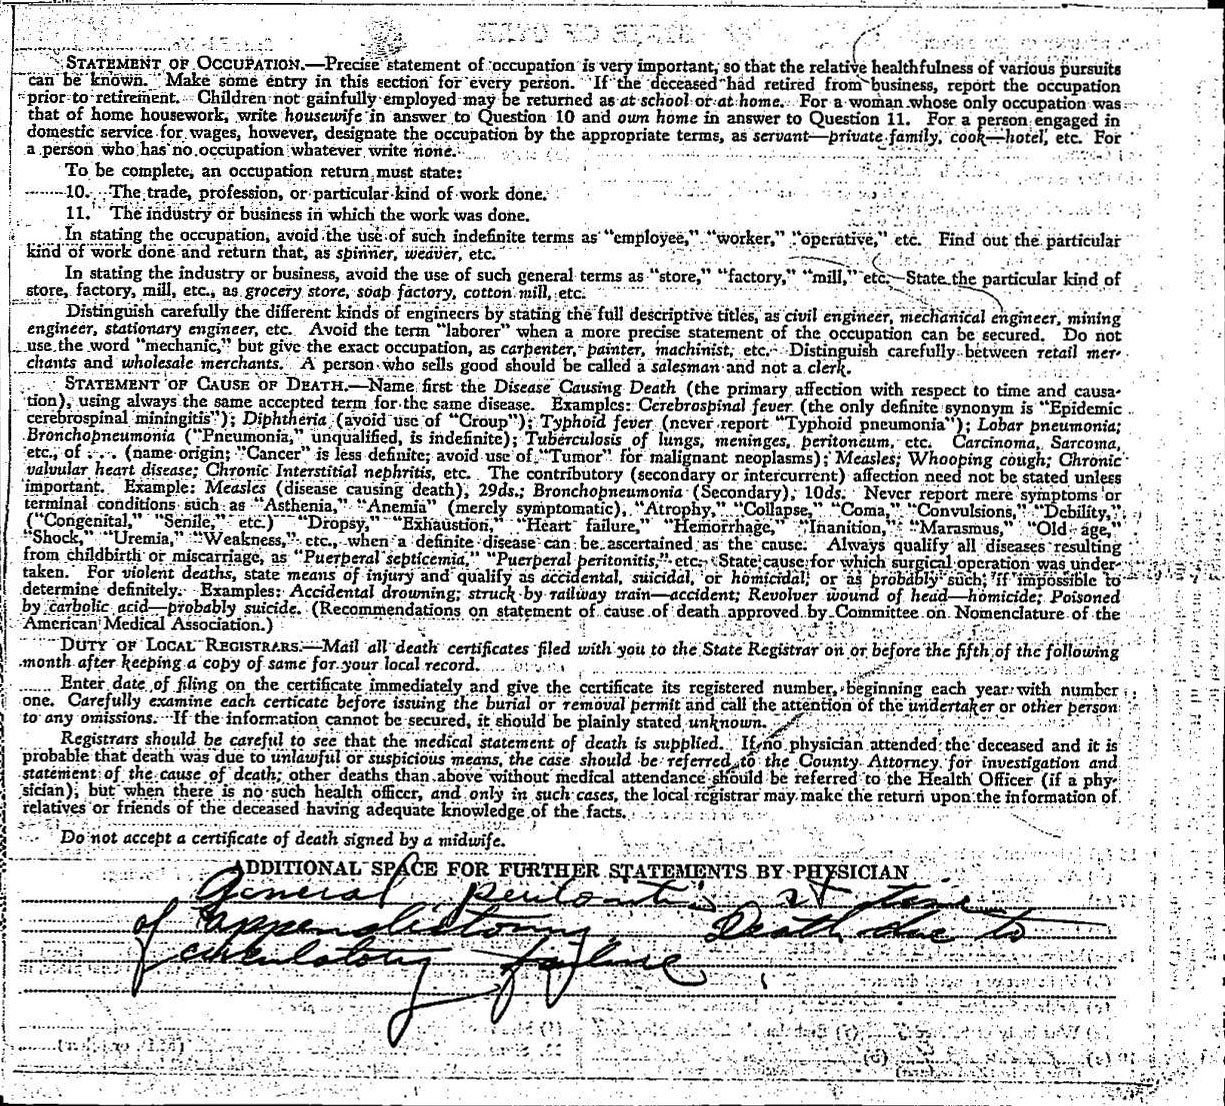 STATEMENT OF OCCUPATION.—Precise statement of occupation is very important, so that the relative healthfulness of various pursuits
can be known. Make some entry in this section for every person. If the deceased had retired from business, report the occupation
prior to retirement. Children not gainfully employed may be returned as at school or at home. For a woman whose only occupation was
that of home housework, write housewife in answer to Question 10 and own home in answer to Question 11. For a person engaged in
domestic service for wages, however, designate the occupation by the appropriate terms, as servant—private family, cook—hotel, etc. For
a person who has no occupation whatever write none.
To be complete, an occupation return must state:
10. The trade, profession, or particular kind of work done.
11. The industry or business in which the work was done.
In stating the occupation, avoid the use of such indefinite terms as "employee," "worker," "operative," etc. Find out the particular
kind of work done and return that, as spinner, weaver, etc.
In stating the industry or business, avoid the use of such general terms as "store," "factory," "mill," etc. State the particular kind of
store, factory, mill, etc., as grocery store, soap factory, cotton mill, etc.
Distinguish carefully the different kinds of engineers by stating the full descriptive titles, as civil engineer, mechanical engineer, mining
engineer, stationary engineer, etc. Avoid the term "laborer" when a more precise statement of the occupation can be secured. Do not
use the word "mechanic," but give the exact occupation, as carpenter, painter, machinist, etc. Distinguish carefully between retail mer-
chants and wholesale merchants. A person who sells good should be called a salesman and not a clerk.
STATEMENT OF CAUSE OF DEATH.—Name first the Disease Causing Death (the primary affection with respect to time and causa-
tion), using always the same accepted term for the same disease. Examples: Cerebrospinal fever (the only definite synonym is "Epidemic
cerebrospinal miningitis"); Diphtheria (avoid use of "Croup"); Typhoid fever (never report "Typhoid pneumonia"); Lobar pneumonia;
Bronchopneumonia ("Pneumonia," unqualified, is indefinite); Tuberculosis of lungs, meninges, peritoneum, etc. Carcinoma, Sarcoma,
etc., of . . . (name origin; "Cancer" is less definite; avoid use of "Tumor" for malignant neoplasms); Measles; Whooping cough; Chronic
valvular heart disease; Chronic Interstitial nephritis, etc. The contributory (secondary or intercurrent) affection need not be stated unless
important. Example: Measles (disease causing death), 29ds.; Bronchopneumonia (Secondary), 10ds. Never report mere symptoms or
terminal conditions such as "Asthenia," "Anemia" (merely symptomatic), "Atrophy," "Collapse," "Coma," "Convulsions," "Debility,"
("Congenital," "Senile," etc.) "Dropsy," "Exhaustion," "Heart failure," "Hemorrhage," "Inanition," "Marasmus," "Old age,"
"Shock," "Uremia," "Weakness," etc., when a definite disease can be ascertained as the cause. Always qualify all diseases resulting
from childbirth or miscarriage, as "Puerperal septicemia," "Puerperal peritonitis," etc. State cause for which surgical operation was under-
taken. For violent deaths, state means of injury and qualify as accidental, suicidal, or homicidal; or as probably such; if impossible to
determine definitely. Examples: Accidental drowning; struck by railway train—accident; Revolver wound of head—homicide; Poisoned
by carbolic acid—probably suicide. (Recommendations on statement of cause of death approved by Committee on Nomenclature of the
American Medical Association.)
DUTY OF LOCAL REGISTRARS.—Mail all death certificates filed with you to the State Registrar on or before the fifth of the following
month after keeping a copy of same for your local record.
Enter date of filing on the certificate immediately and give the certificate its registered number, beginning each year with number
one. Carefully examine each certicate before issuing the burial or removal permit and call the attention of the undertaker or other person
to any omissions. If the information cannot be secured, it should be plainly stated unknown.
Registrars should be careful to see that the medical statement of death is supplied. If no physician attended the deceased and it is
probable that death was due to unlawful or suspicious means, the case should be referred to the County Attorney for investigation and
statement of the cause of death; other deaths than above without medical attendance should be referred to the Health Officer (if a phy-
sician), but when there is no such health officer, and only in such cases, the local registrar may make the return upon the information of
relatives or friends of the deceased having adequate knowledge of the facts.
Do not accept a certificate of death signed by a midwife.
ADDITIONAL SPACE FOR FURTHER STATEMENTS BY PHYSICIAN
General peritonitis at time
of appendectomy. Death due to
circulatory failure